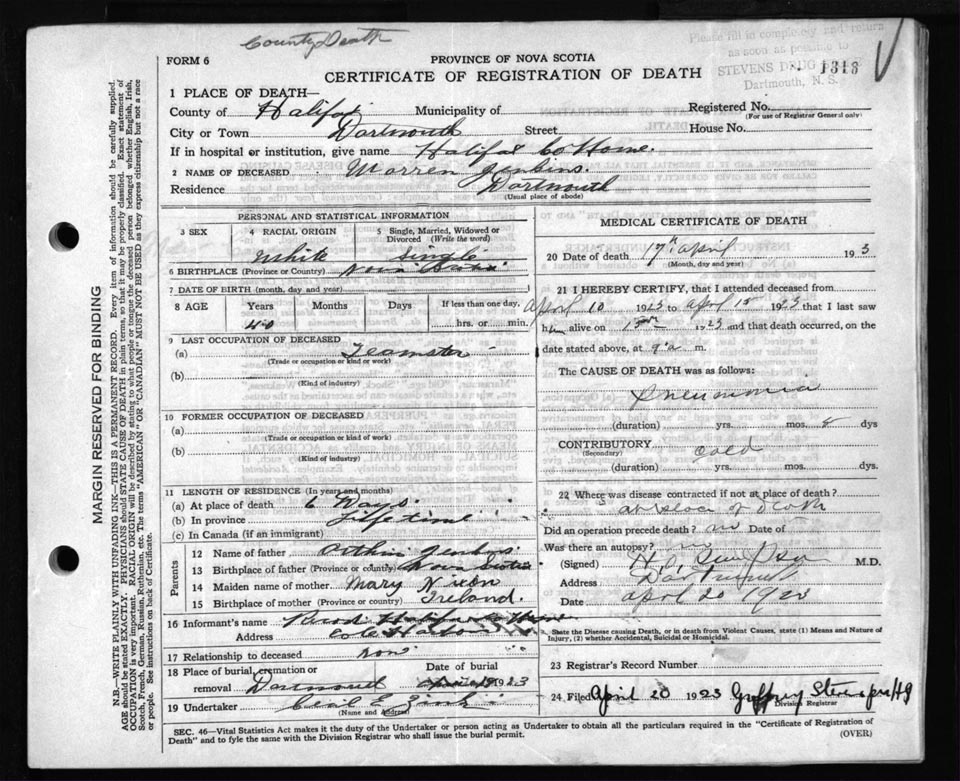 County Death
Please fill in completely and return
as soon as possible to
STEVENS DRUG
Dartmouth, N. S.
1313
FORM 6
PROVINCE OF NOVA SCOTIA
CERTIFICATE OF REGISTRATION OF DEATH
1 PLACE OF DEATH—
County of Halifax Municipality of Registered No.
(For use of Registrar General only)
City or Town Dartmouth Street House No.
If in hospital or institution, give name Halifax Co Home.
2 NAME OF DECEASED Warren Jenkins.
Residence Dartmouth
(Usual place of abode)
PERSONAL AND STATISTICAL INFORMATION
3 SEX 4 RACIAL ORIGIN 5 Single, Married, Widowed or Divorced (Write the word)
White Single
6 BIRTHPLACE (Province or Country) Nova Scotia
7 DATE OF BIRTH (month, day and year)
8 AGE Years Months Days If less than one day,
40 hrs. or min.
9 LAST OCCUPATION OF DECEASED
(a) Teamster
(Trade or occupation or kind or work)
(b)
(Kind of industry)
10 FORMER OCCUPATION OF DECEASED
(a)
(Trade or occupation or kind of work)
(b)
(Kind of industry)
11 LENGTH OF RESIDENCE (In years and months)
(a) At place of death 6 Days
(b) In province Life time
(c) In Canada (if an immigrant)
Parents
12 Name of father Arthur Jenkins
13 Birthplace of father (Province or country) Nova Scotia
14 Maiden name of mother Mary Nixon
15 Birthplace of mother (Province or country) Ireland.
16 Informant's name Halifax Co Home
Address Cole Harbour
17 Relationship to deceased none
18 Place of burial, cremation or removal Dartmouth Date of burial 1923
19 Undertaker
(Name and Address)
MEDICAL CERTIFICATE OF DEATH
20 Date of death 17th April 1923
(Month, day and year)
21 I HEREBY CERTIFY, that I attended deceased from
April 10 1923 to April 15 1923 that I last saw
him alive on 15th 1923 and that death occurred, on the
date stated above, at 9 a m.
The CAUSE OF DEATH was as follows:
Pneumonia
(duration) yrs. mos. 8 dys
CONTRIBUTORY Cold
(Secondary)
(duration) yrs. mos. dys.
22 Where was disease contracted if not at place of death?
at place of Death
Did an operation precede death? no Date of
Was there an autopsy? no
(Signed) M.D.
Address Dartmouth
Date April 20 1923
State the Disease causing Death, or in death from Violent Causes, state (1) Means and Nature of Injury, (2) whether Accidental, Suicidal or Homicidal.
23 Registrar's Record Number
24 Filed April 20 1923 Geoffrey Stevens per HG
Division Registrar
SEC. 46—Vital Statistics Act makes it the duty of the Undertaker or person acting as Undertaker to obtain all the particulars required in the "Certificate of Registration of
Death" and to fyle the same with the Division Registrar who shall issue the burial permit. (OVER)
MARGIN RESERVED FOR BINDING
N.B.—WRITE PLAINLY WITH UNFADING INK—THIS IS A PERMANENT RECORD. Every item of information should be carefully supplied.
AGE should be stated EXACTLY. PHYSICIANS should STATE CAUSE OF DEATH in plain terms, so that it may be properly classified. Exact statement of
OCCUPATION is very important. RACIAL ORIGIN will be described by stating to what people or tongue the deceased person belonged whether English, Irish,
Scotch, French, German, Russian, Ruthenian, etc. The terms "AMERICAN" OR "CANADIAN" MUST NOT BE USED as they express citizenship but not a race
or people. See instructions on back of Certificate.